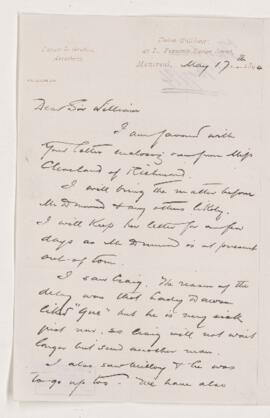 Montreal, May 17th
Dear Sir William
I am favored with
your letter enclosing one from Miss
Cleveland of Richmond.
I will bring the matter before
Mr Drummond & any others likely.
I will keep her letter for a few
days as Mr Drummond is at present
out of town.
I saw Craig. The reason of the
delay was that
but he is very sick
just now. so Craig will not wait
longer but send another man.
I also saw & he was
to go up too. We have also